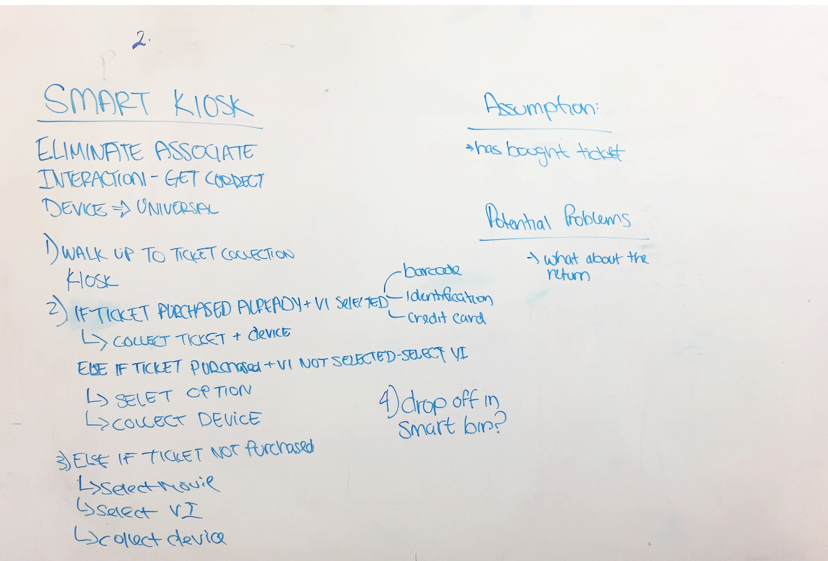 2.
SMART KIOSK
ELIMINATE ASSOCIATE
INTERACTION - GET CORRECT
DEVICE ⇒ UNIVERSAL
1) WALK UP TO TICKET COLLECTION
KIOSK
2) IF TICKET PURCHASED ALREADY + VI SELECTED
barcode
identification
credit card
↳ COLLECT TICKET + device
ELSE IF TICKET PURCHASED + VI NOT SELECTED - SELECT VI
↳ SELET OPTION
↳ COLLECT DEVICE
3) ELSE IF TICKET NOT PURCHASED
↳ Select Movie
↳ Select VI
↳ collect device
4) drop off in
smart bin?
Assumption:
→ has bought ticket
Potential Problems
→ what about the
return